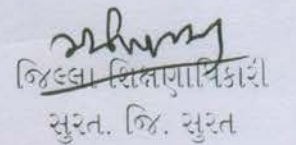 જિલ્લા શિક્ષણાધિકારી
સુરત. જિ. સુરત